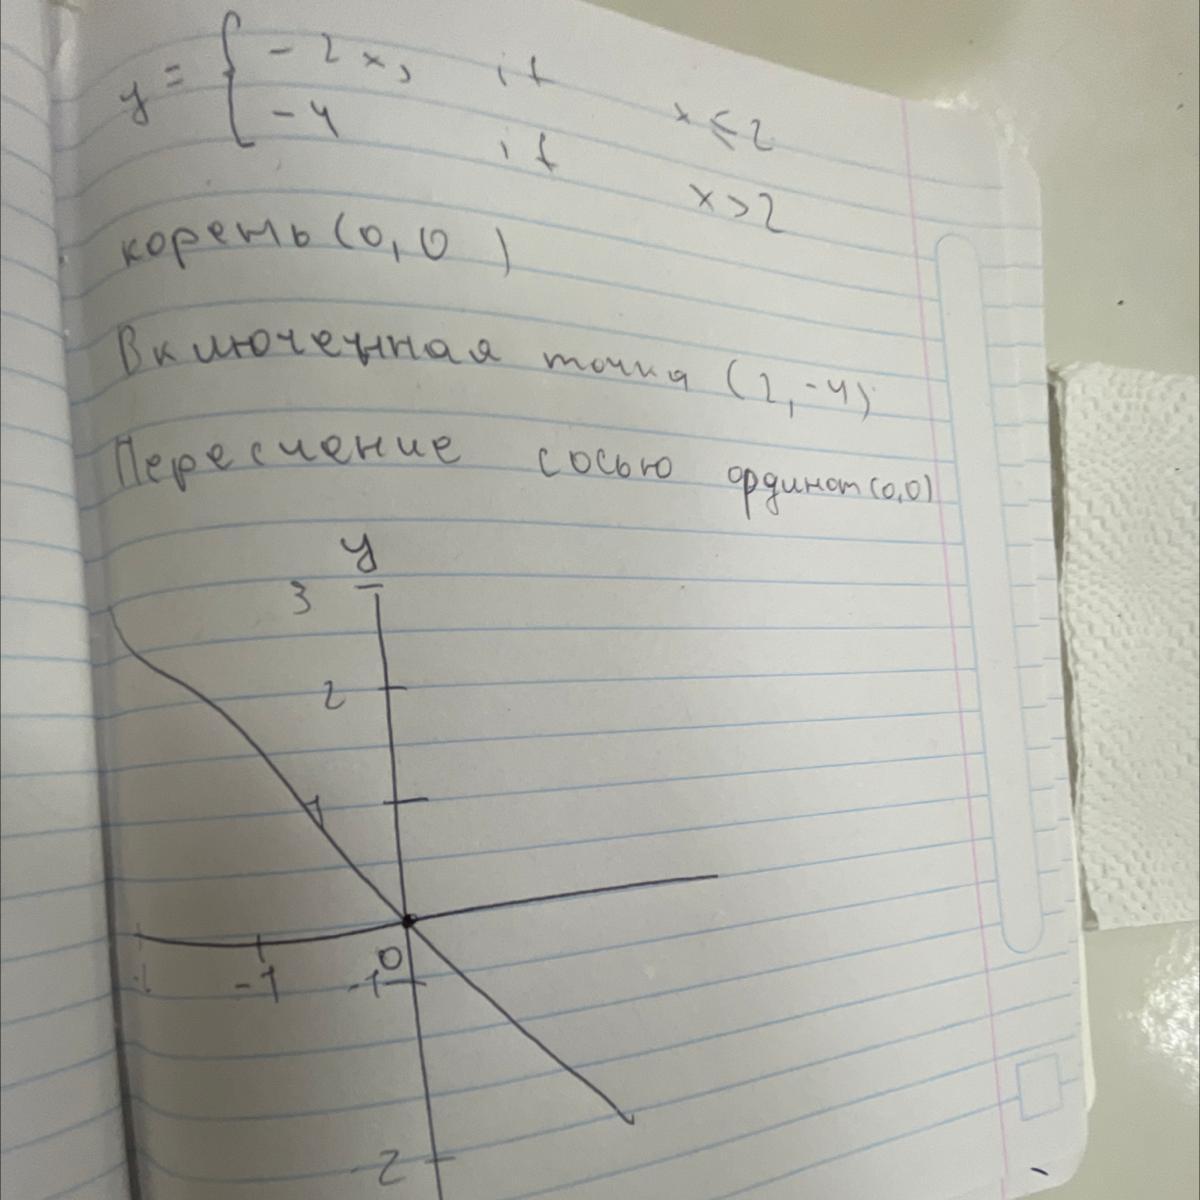 y = { -2x, if x ≤ 2
-4 if x > 2
корень (0, 0)
Включенная точка (2, -4)
Пересечение с осью ординат (0,0)
y
3
2
1
0
-1
-1
-2